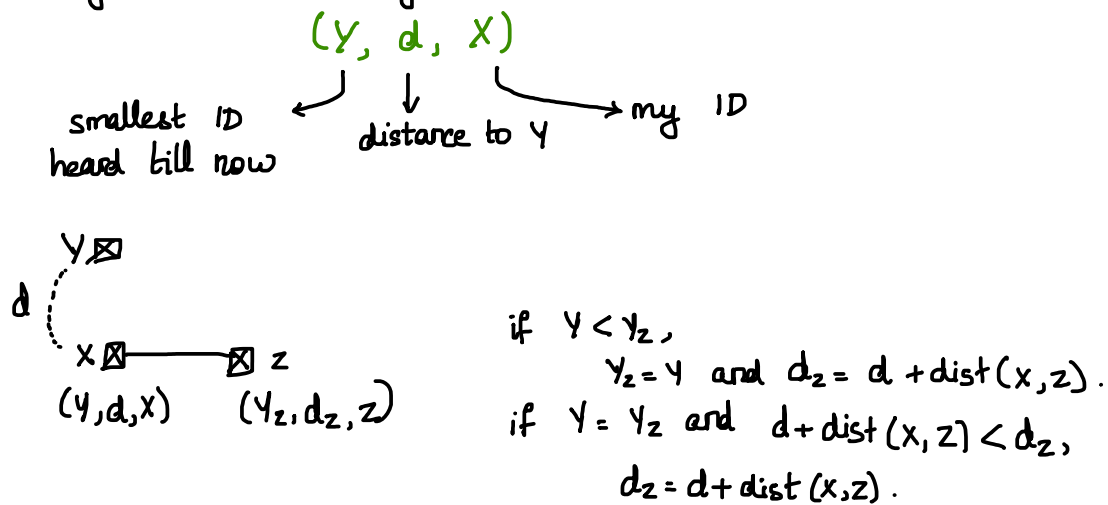 (Y, d, X)
smallest ID
heard till now
distance to Y
my ID
Y
d
X
z
(Y,d,X)
(Yz, dz, z)
if Y < Yz,
Yz = Y and dz = d + dist(x,z).
if Y = Yz and d + dist(x,z) < dz,
dz = d + dist(x,z).